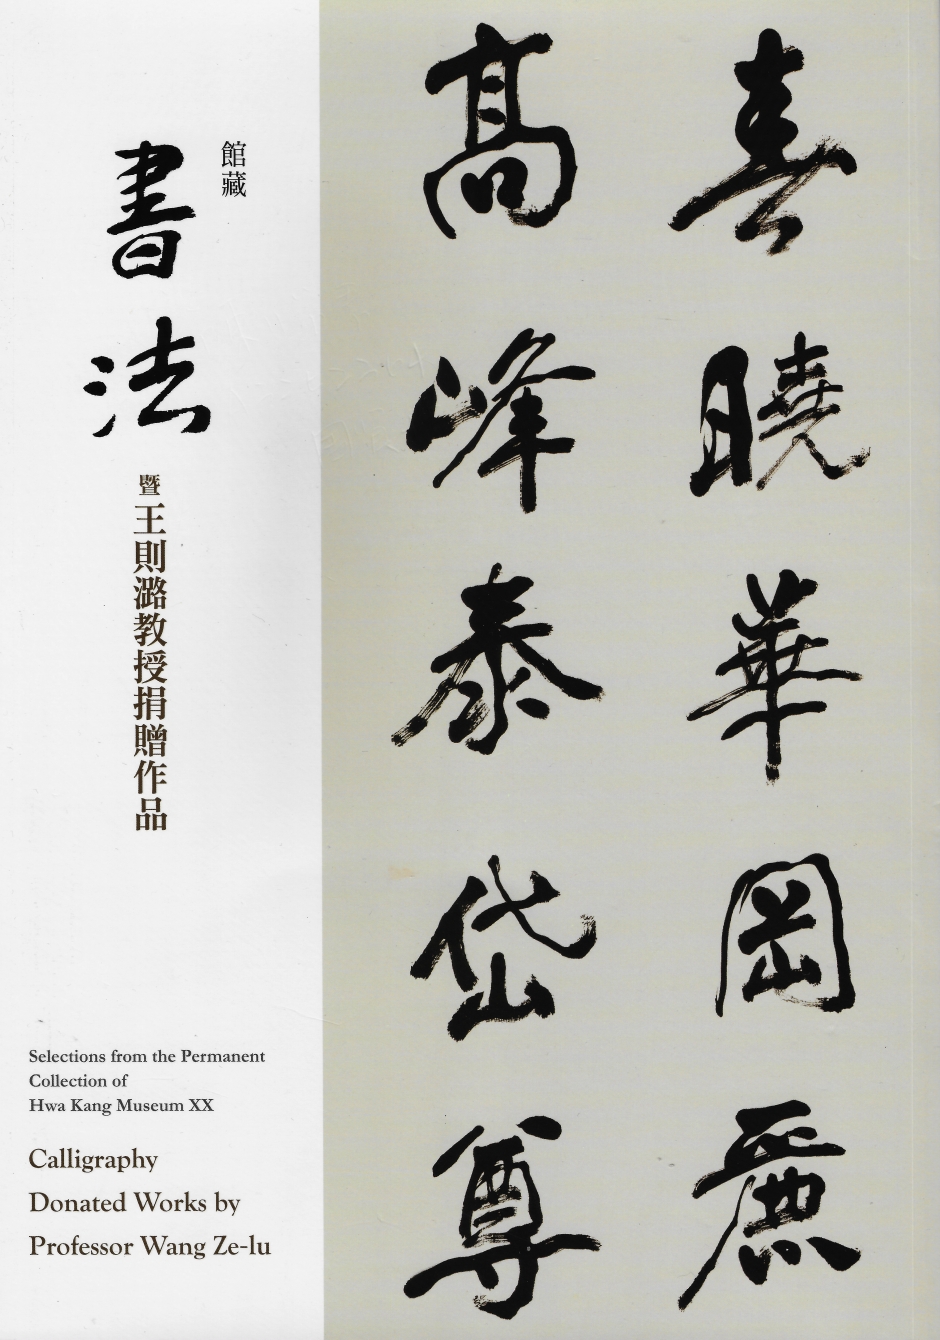 春曉華岡麗
高峰泰岱尊
館藏
書法
暨王則潞教授捐贈作品
Selections from the Permanent
Collection of
Hwa Kang Museum XX
Calligraphy
Donated Works by
Professor Wang Ze-lu